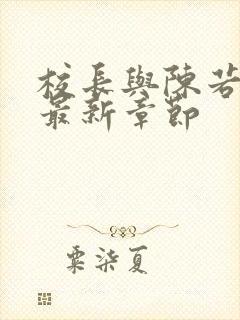 校長與陳若
最新章節
粟柒夏